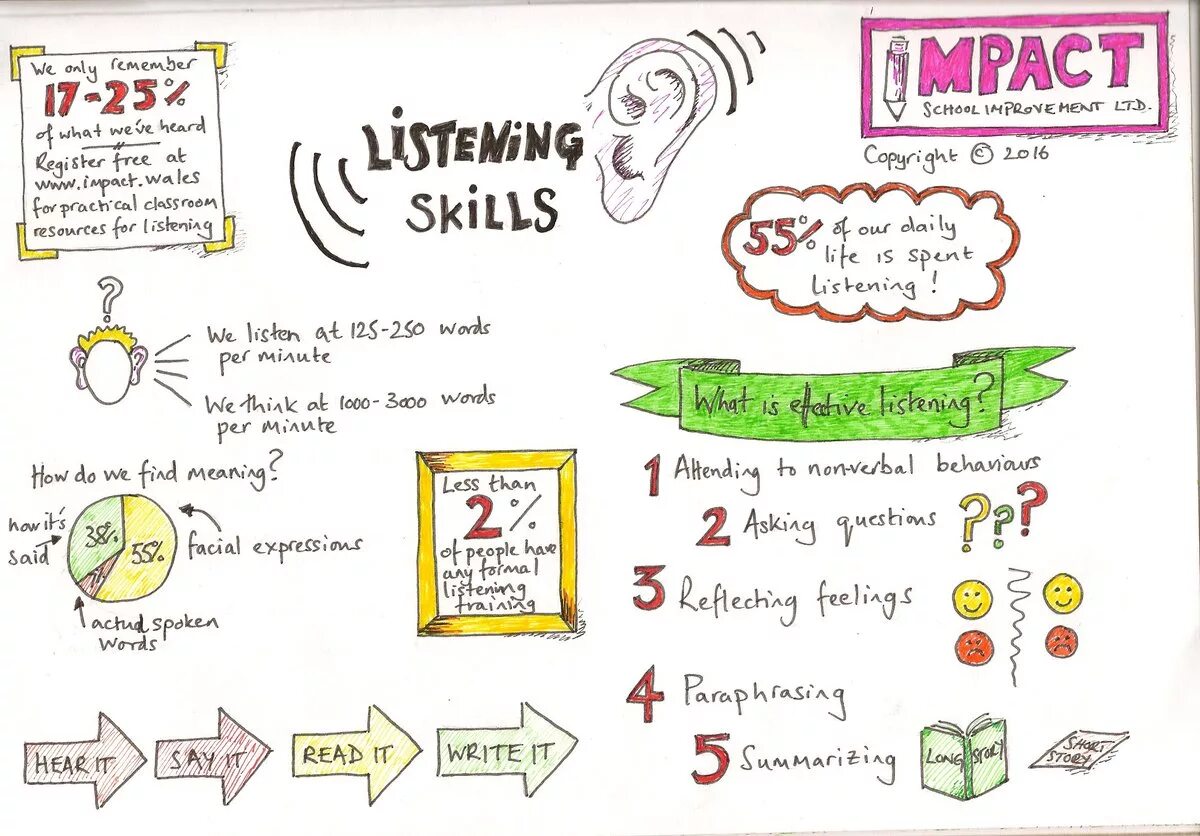 We only remember
17-25%
of what we've heard
Register free at
www.impact.wales
for practical classroom
resources for listening
LISTENING
SKILLS
IMPACT
SCHOOL IMPROVEMENT LTD.
Copyright © 2016
55% of our daily
life is spent
listening!
?
We listen at 125-250 words
per minute
We think at 1000-3000 words
per minute
How do we find meaning?
how it's
said
38%
55%
7%
facial expressions
actual spoken
words
Less than
2%
of people have
any formal
listening
training
HEAR IT
SAY IT
READ IT
WRITE IT
What is effective listening?
1 Attending to non-verbal behaviours
2 Asking questions ???
3 Reflecting feelings
4 Paraphrasing
5 Summarizing
LONG STORY
SHORT
STORY